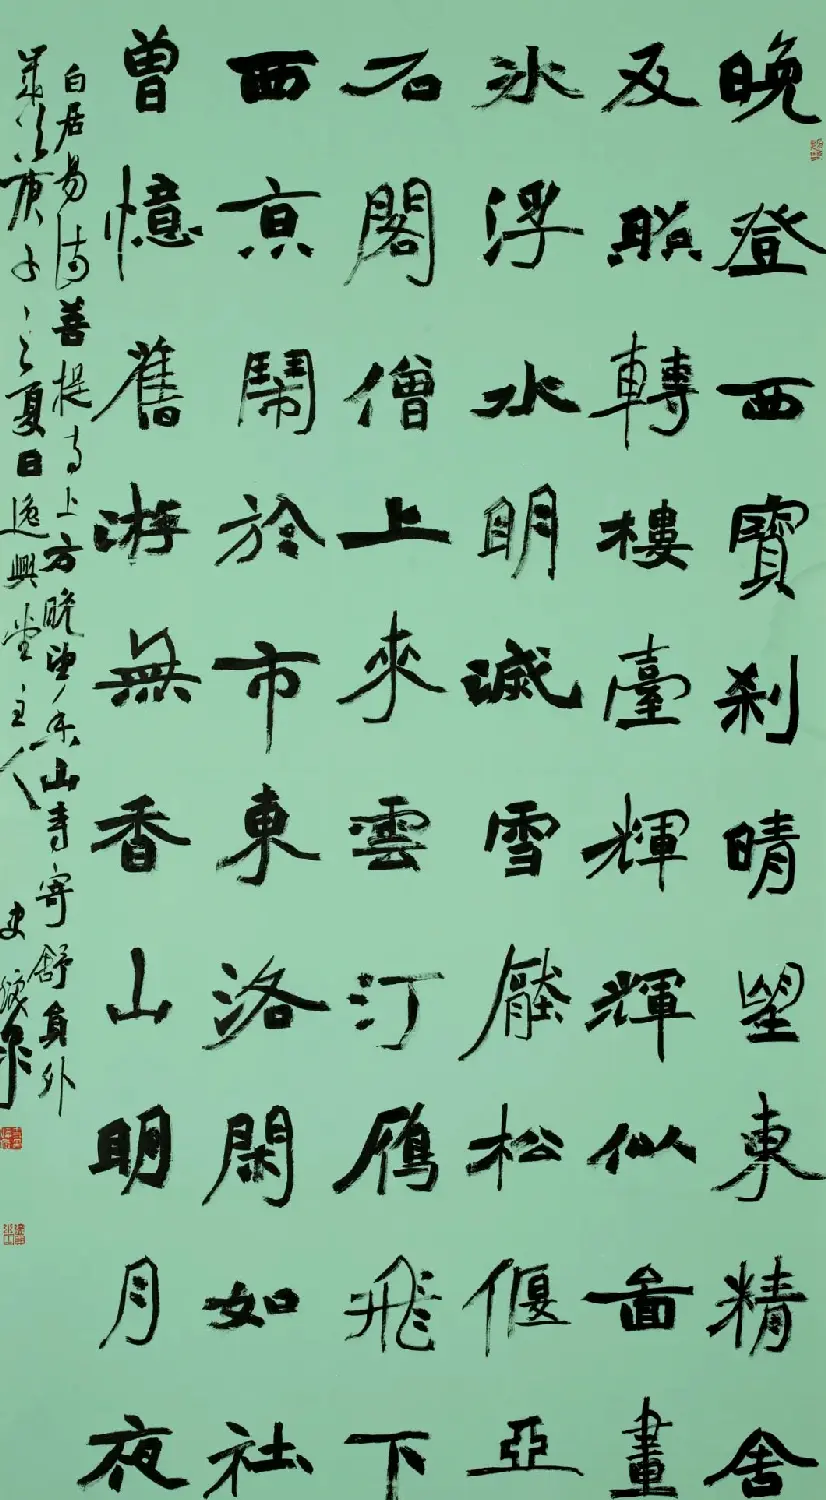 晚登西寶刹晴望東精舍
反照轉樓臺輝輝似圖畫
冰浮水明滅雪壓松偃亞
石閣僧上來雲汀雁飛下
西京鬧於市東洛閑如社
曾憶舊游無香山明月夜
白居易詩菩提寺上方晚望香山寺寄舒員外
歲次庚子之夏日逸興堂主人史泉